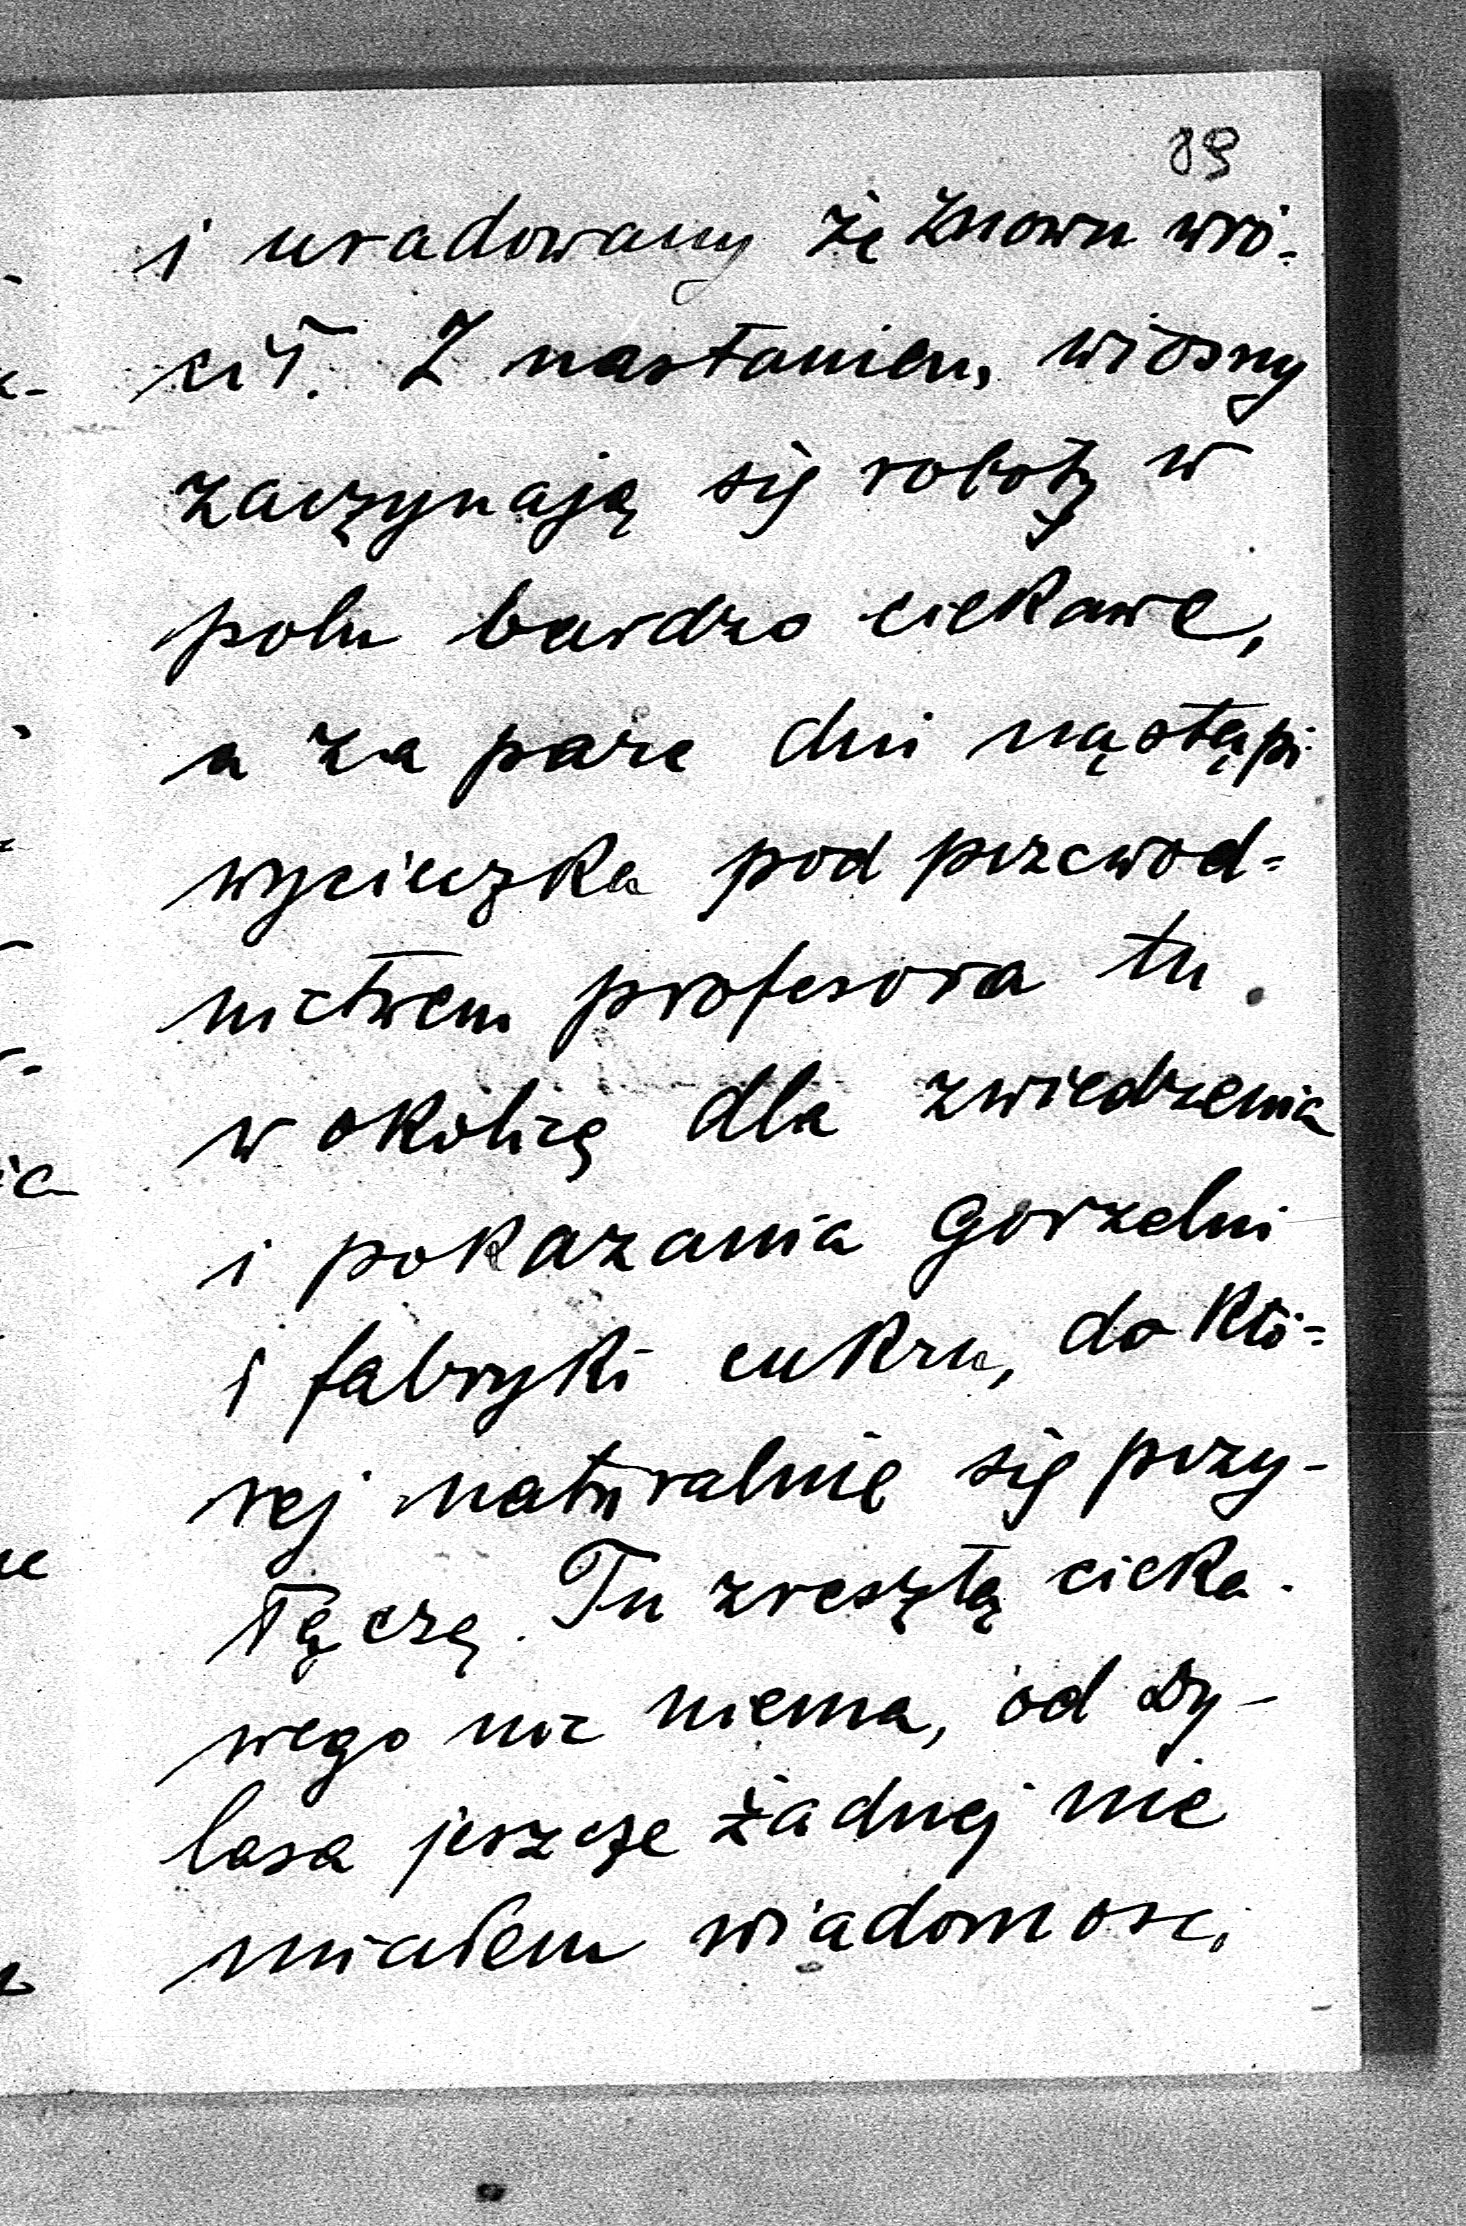 89
i uradowany że znowu wró-
cił. Z nastaniem wiosny
zaczynają się roboty w
polu bardzo ciekawe,
a za parę dni nąstąpi
wycieczka pod przewod-
nictwem profesora tu
w okolicę dla zwiedzenia
i pokazania gorzelni
i fabryki cukru, do któ-
rej naturalnie się przy-
łączę. Tu zresztą cieka-
wego nic niema, od Dy-
lasa jeszcze żadnej nie
miałem wiadomosci